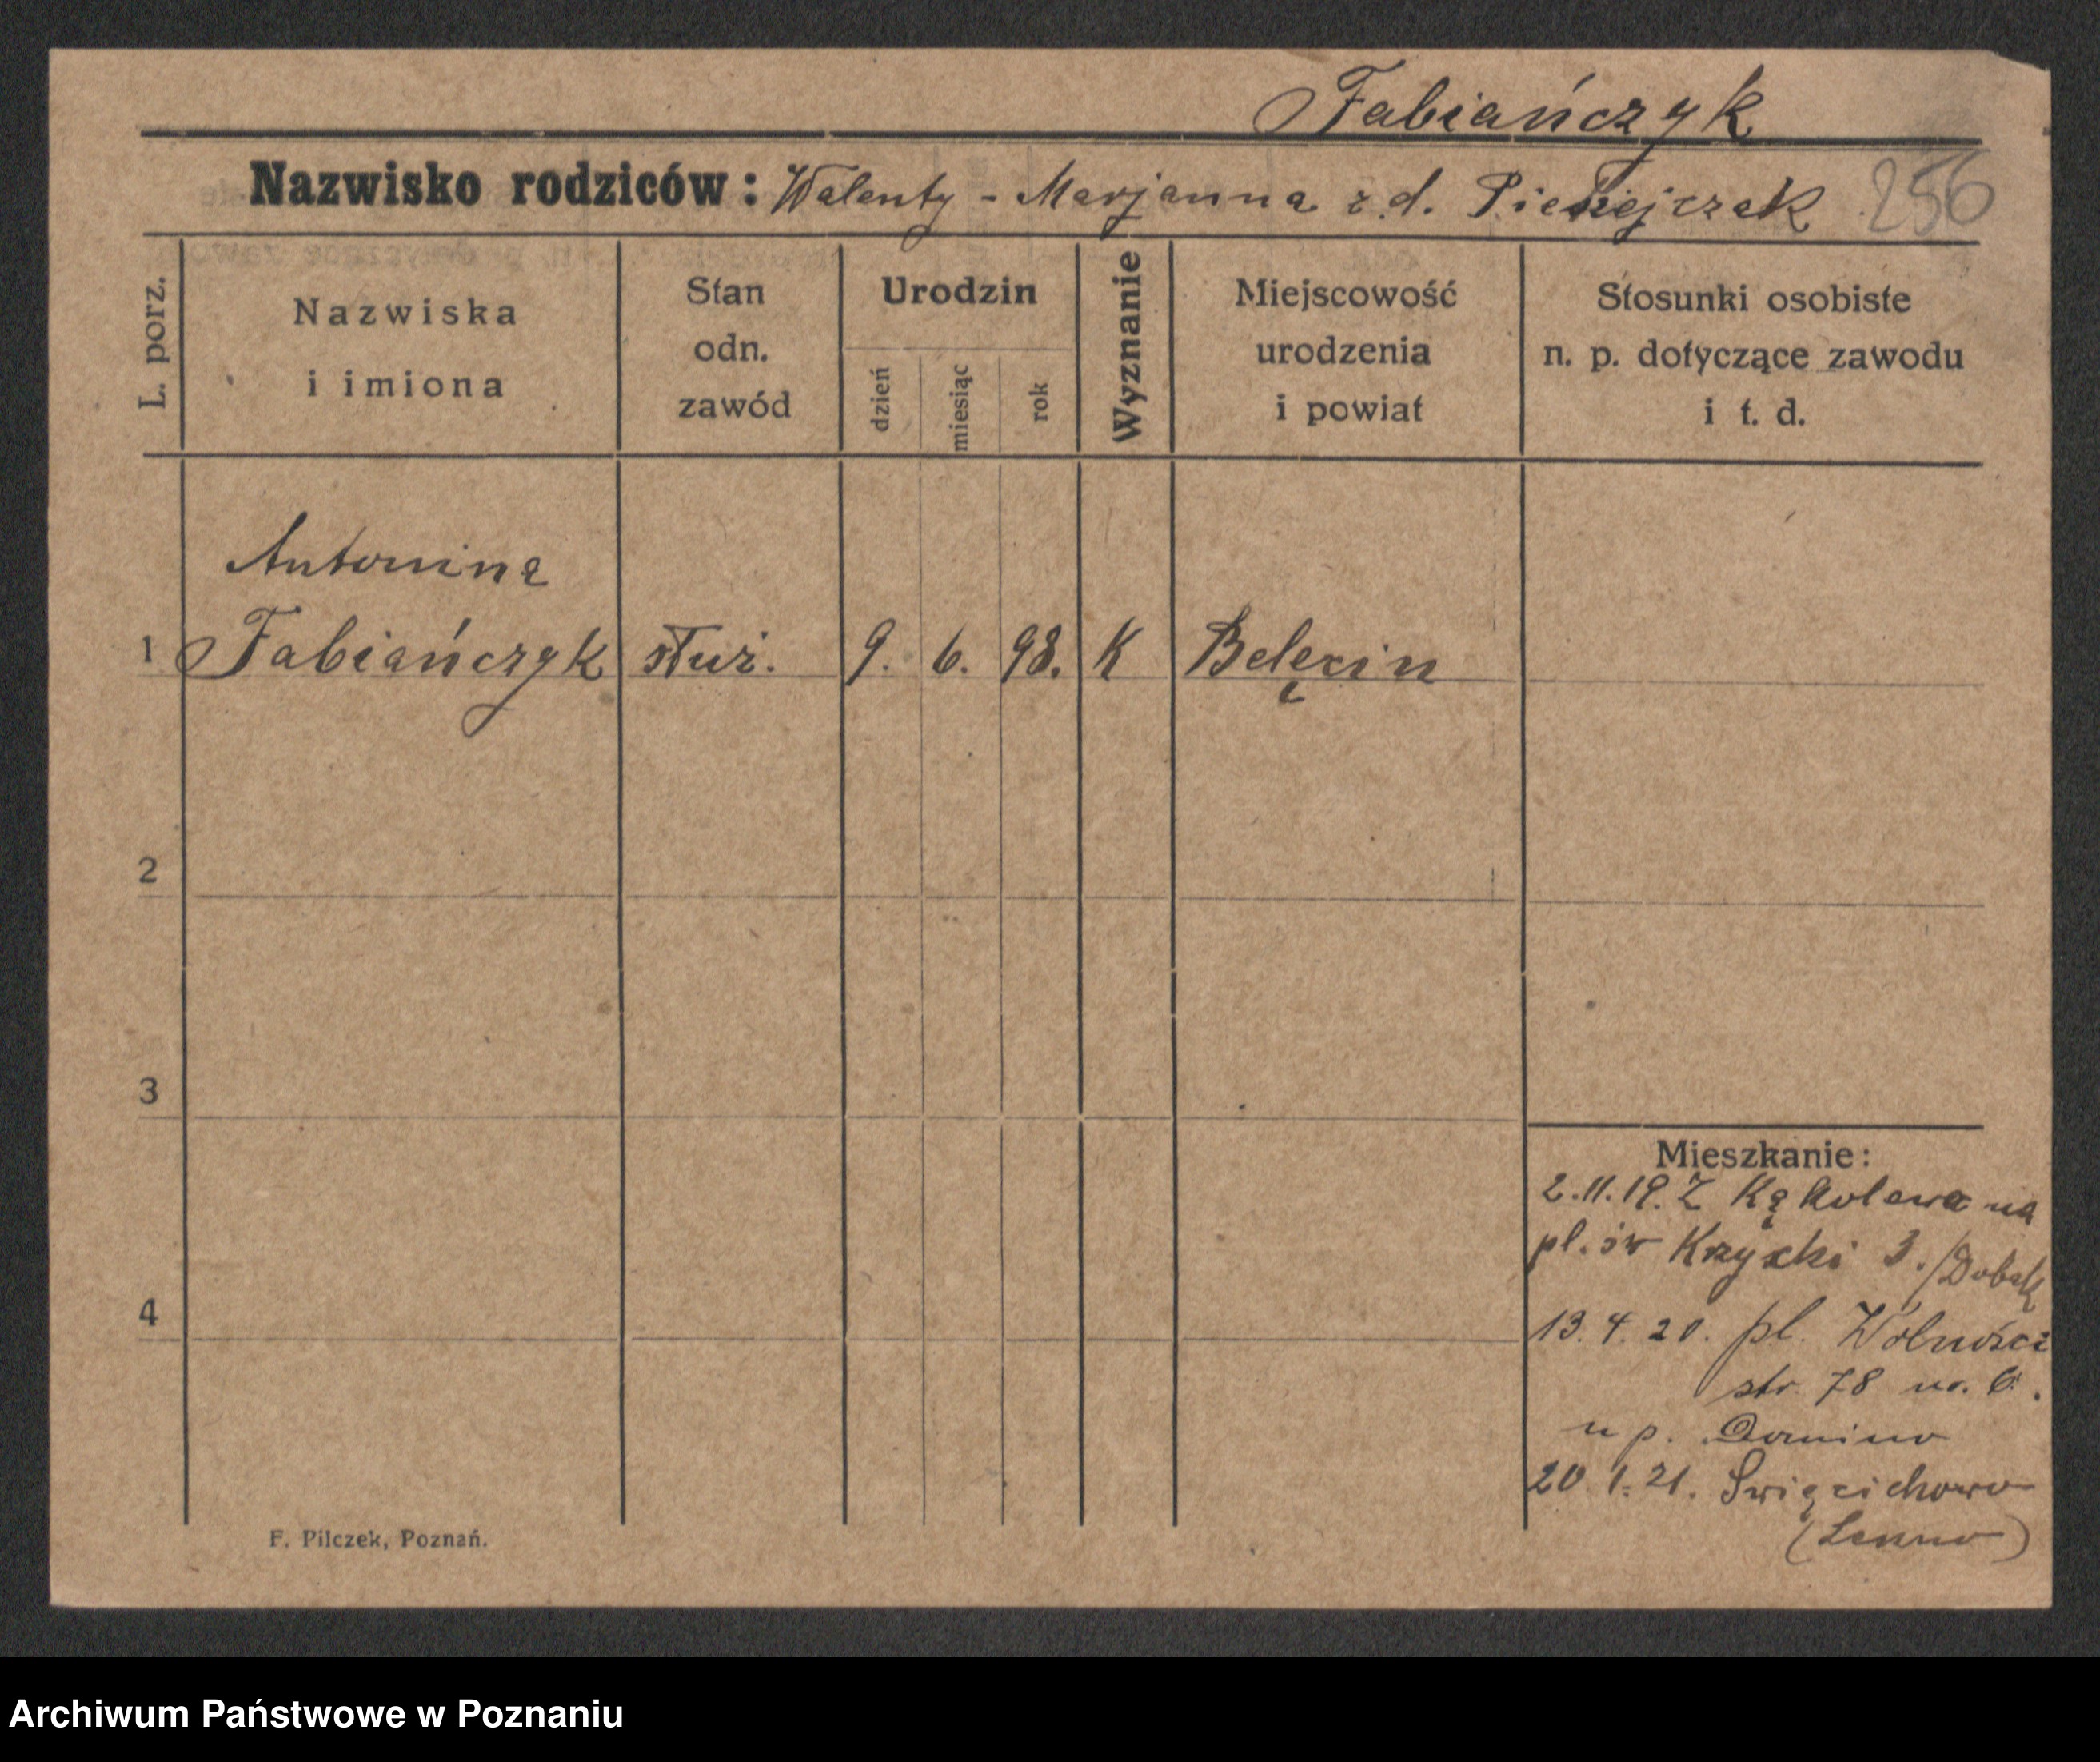 Fabiańczyk
Nazwisko rodziców: Walenty - Marjanna z d. 256
L. porz.
Nazwiska
i imiona
Stan
odn.
zawód
Urodzin
dzień
miesiąc
rok
Wyznanie
Miejscowość
urodzenia
i powiat
Stosunki osobiste
n. p. dotyczące zawodu
i t. d.
Antonina
1 Fabiańczyk służ. 9. 6. 98. K Belęcin
2
3
4
Mieszkanie:
2.11.19. Z Kąkolewa na
pl. św Krzyski 3.
13. 4. 20. pl. Wolności
str. 78 nr. 6.
u p. Domino
20 1. 21. Swięcichowo
F. Pilczek, Poznań.
Archiwum Państwowe w Poznaniu